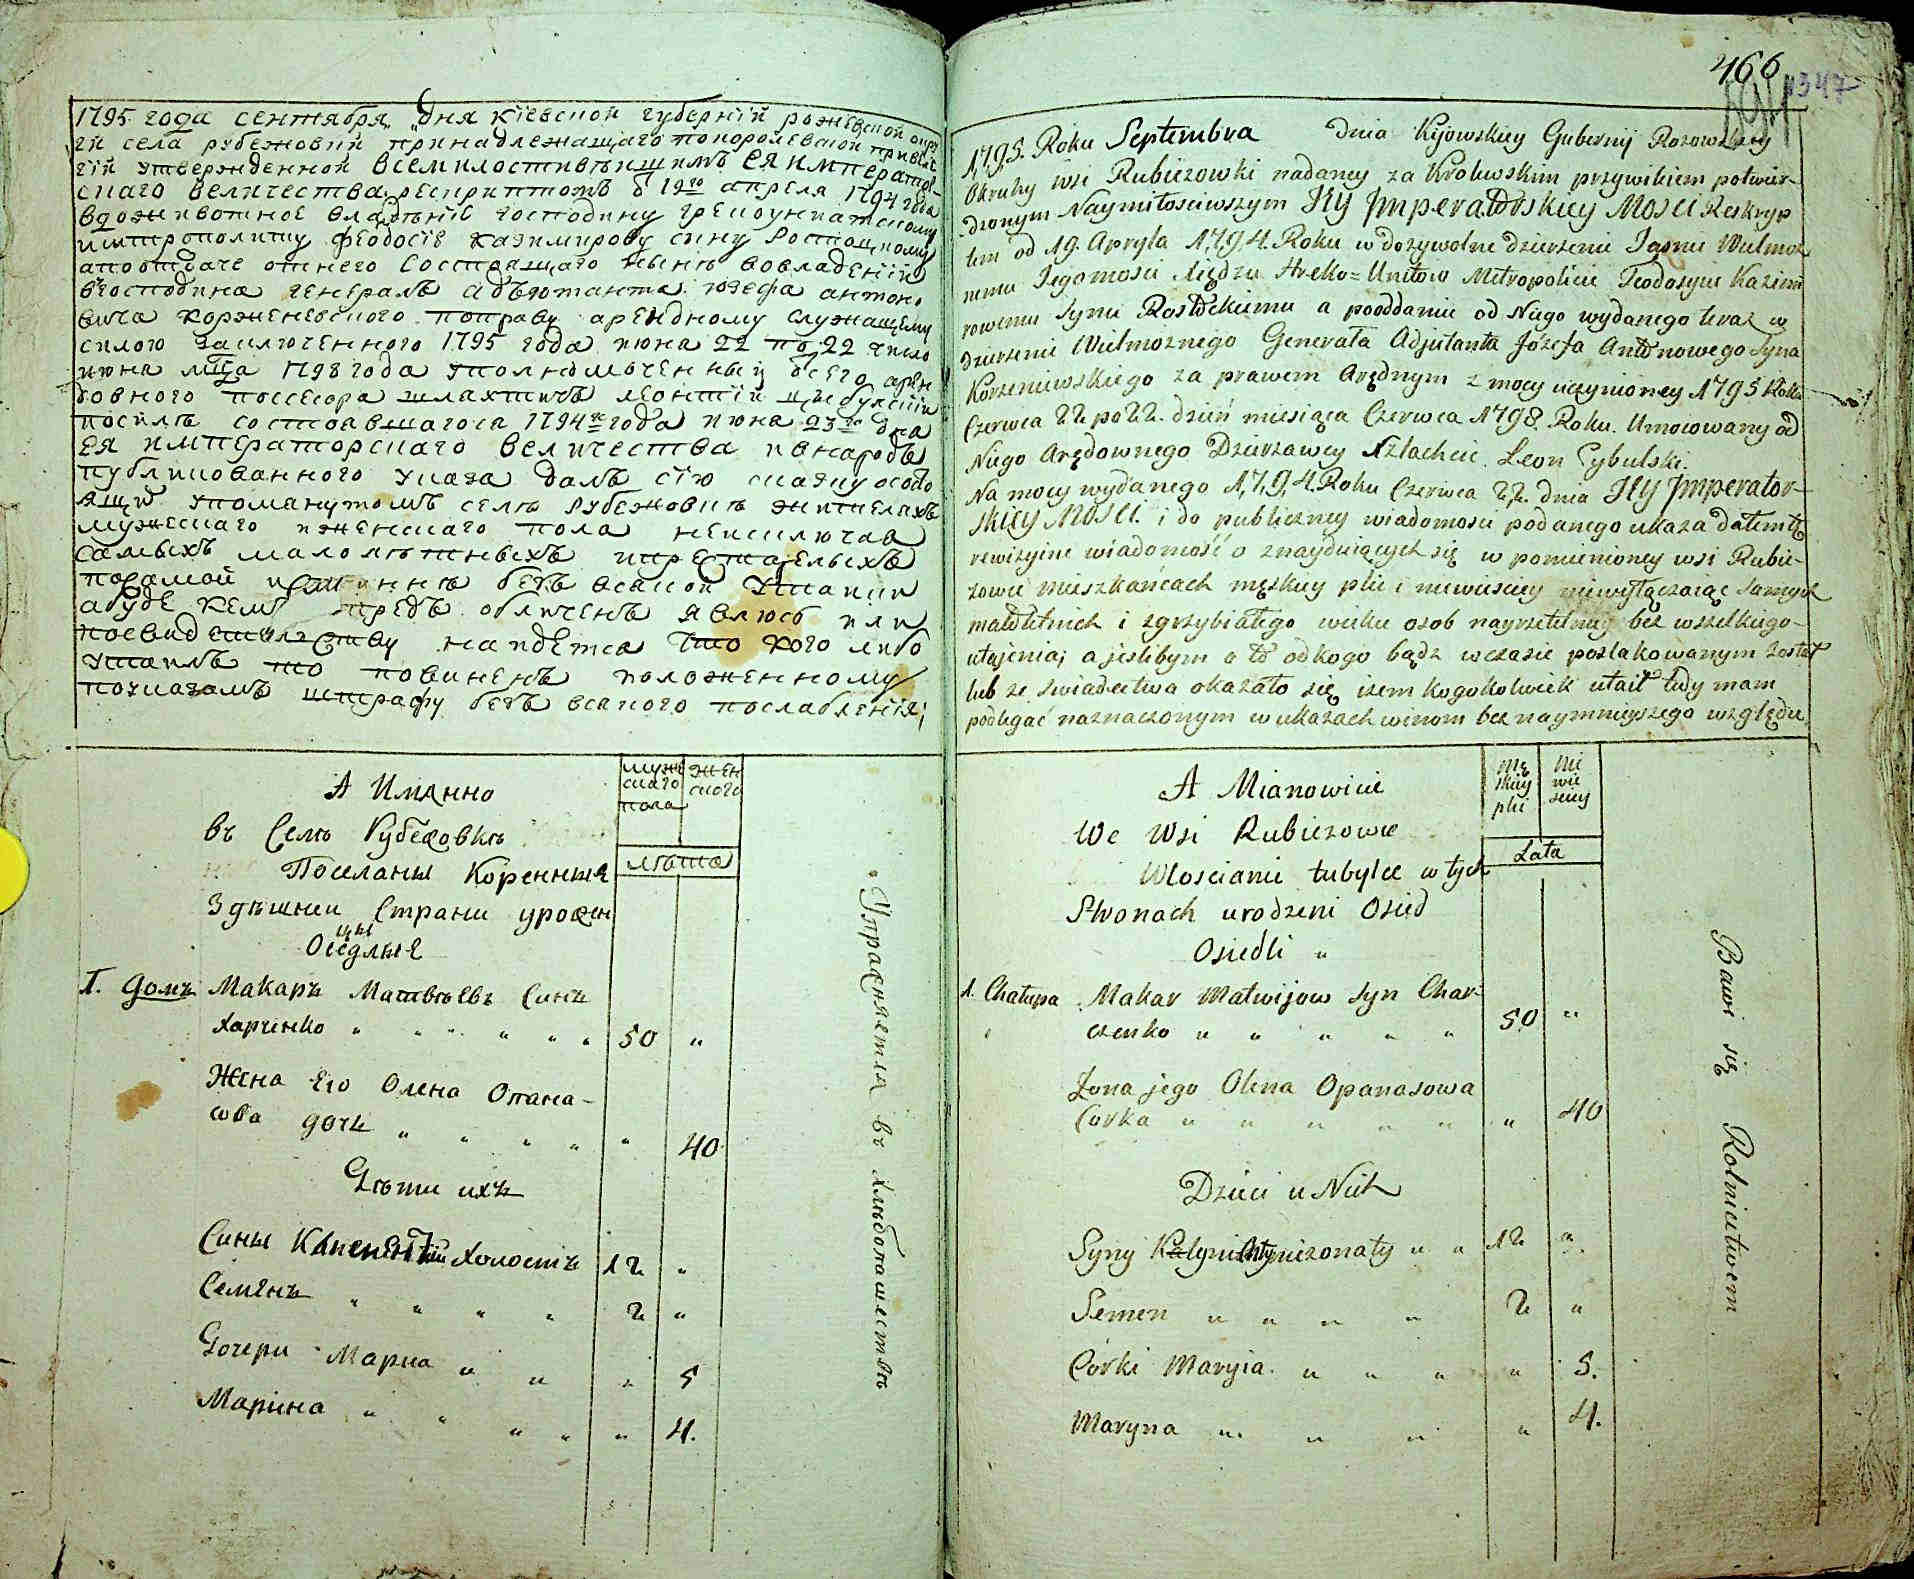 1795 года сентября „ „ дня кіевской губерніи рожевской окру
ги села рубежовки принадлежащаго покоролевской привиле
гіи утвержденной всемилостивѣишимъ ея император
скаго величества рескриптомъ 19го апреля 1794 года
вдоживотное владѣніе господину грекоуниатскому
митрополиту феодосіе казимирову сину Ростоцкому
апоотдаче отнего состоящаго нынѣ вовладеніи
господина генералъ адъютанта юзефа антоно
вича корженевского поправу арендному служащему
силою заключенного 1795 года июна 22 по 22 число
июна мца 1798 года уполномоченный его арен
довного поссесора шляхтичъ леонтій цыбулскій
посилѣ состоявшагося 1794 года июна 23 дня
ея императорскаго величества ивнародъ
публикованного указа далъ сію сказку осо
ящи упоманутомъ селѣ рубежовкѣ жителахъ
мужескаго иженскаго пола неисключая
самыхъ малолѣтныхъ ипрестарелыхъ
посамой истиннѣ безъ всякой утайки
абуде кемъ предъ обличенъ явлюсь или
посвидетелству наидетса что кого либо
утаилъ то повиненъ положенному
поуказамъ штрафу безъ всякого послабленія;
А Имянно
въ Селѣ Рубежовкѣ
Поселаны Коренныя
Здѣшнеи Страни урожен
цы
Оседлыя
муже
скаго
пола
жен
ского
лѣта
1. домъ Макаръ Матвѣевъ Синъ
Харченко „ „ „ „ „ „ 50 „
Жена Его Олена Опана-
сова дочь „ „ „ „ „ 40
Дѣти ихъ
Сины Холостъ 12 „
Семенъ „ „ „ „ 2 „
Дочери Мариа „ „ „ 5
Марина „ „ „ „ „ 4.
Упражняетца въ хлѣбопашествѣ
466
347
1795. Roku Septembra Dnia Kyiowskiey Gubernij Rozowskiey
Okruhy wsi Rubiezowki nadaney za Krolewskim przywileiem potwier-
dzonym Naymiłosciwszym Jey Jmperatorskiey Mosci Reskryp
tem od 19. Apryla 1794. Roku w dozywotne dzierzenie Jasnie Wielmoz
nemu Jegomosci Xiędzu Hreko=Unitow Metropolicie Teodosyiu Kazimi
rowemu Synu Rostockiemu a pooddaniu od Niego wydanego teraz w
dzierzenie Wielmoznego Generała Adjutanta Józefa Antonowego Syna
Korzeniewskiego za prawem Arędnym z mocy uczynioney 1795 Roku
Czerwca 22 po 22. dzień miesiąca Czerwca 1798. Roku. Umocowany od
Niego Arędownego Dzierzawcy Szlachcic Leon Cybulski.
Na mocy wydanego 1794. Roku Czerwca 22. dnia Jey Jmperator-
skiey Mosci. i do publiczney wiadomosci podanego ukaza dałem tę
rewizyine wiadomość o znayduiących się w pomienioney wsi Rubie-
zowie mieszkańcach męskiey płci i niewiesciey niewyłączaiąc samych
małoletnich i zgrzybiałego wieku osob nayrzetelniey bez wszelkiego
utajenia; a jeslibym o to odkogo bądz wczasie poszlakowanym został
lub ze swiadectwa okazało się izem kogokolwiek utaił tedy mam
podlegać naznaczonym w ukazach winom bez naymnieyszego względu,
A Mianowicie
We Wsi Rubiezowie
Włoscianie tubylce w tych
Stronach urodzeni Osied
Osiedli „
Mę
skiey
płci
Nie
wie
sciey
Lata
1. Chałupa Makar Matwijow Syn Char-
czenko „ „ „ „ „ 50 „
Zona jego Olena Opanasowa
Corka „ „ „ „ „ „ 40
Dzieci u Nich
Syny niezonaty „ „ 12 „
Semen „ „ „ „ 2 „
Córki Maryia „ „ „ „ 5.
Maryna „ „ „ „ 4.
Bawi się Rolnictwem